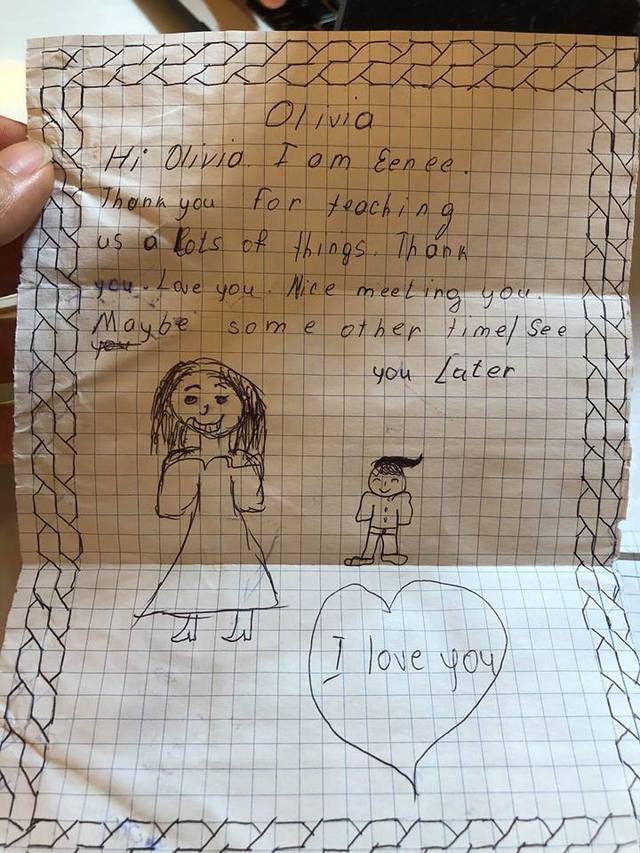 Olivia
Hi Olivia. I am Eenee.
Thank you for teaching
us a lots of things. Thank
you. Love you. Nice meeting you.
Maybe some other time/See
you
you Later
I love you